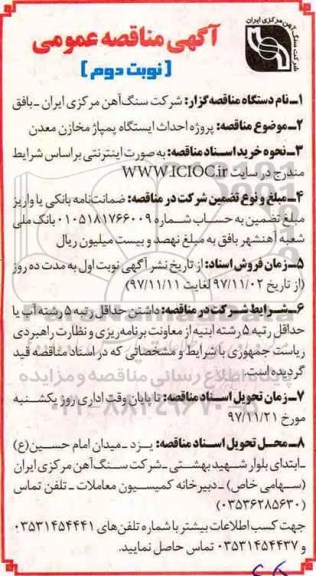 شرکت سنگ آهن مرکزی ایران
آگهی مناقصه عمومی
(نوبت دوم)
۱ـ نام دستگاه مناقصه‌گزار: شرکت سنگ‌آهن مرکزی ایران ـ بافق
۲ـ موضوع مناقصه: پروژه احداث ایستگاه پمپاژ مخازن معدن
۳ـ نحوه خرید اسناد مناقصه: به صورت اینترنتی براساس شرایط
مندرج در سایت WWW.ICIOC.ir
۴ـ مبلغ و نوع تضمین شرکت در مناقصه: ضمانت‌نامه بانکی یا واریز
مبلغ تضمین به حساب شماره ۰۱۰۵۱۸۱۷۶۶۰۰۹ بانک ملی
شعبه آهنشهر بافق به مبلغ نهصد و بیست میلیون ریال
۵ـ زمان فروش اسناد: از تاریخ نشر آگهی نوبت اول به مدت ده روز
(از تاریخ ۹۷/۱۱/۰۲ لغایت ۹۷/۱۱/۱۱)
۶ـ شرایط شرکت در مناقصه: داشتن حداقل رتبه ۵ رشته آب یا
حداقل رتبه ۵ رشته ابنیه از معاونت برنامه‌ریزی و نظارت راهبردی
ریاست جمهوری با شرایط و مشخصاتی که در اسناد مناقصه قید
گردیده است.
۷ـ زمان تحویل اسناد مناقصه: تا پایان وقت اداری روز یکشنبه
مورخ ۹۷/۱۱/۲۱
۸ـ محل تحویل اسناد مناقصه: یزد ـ میدان امام حسین(ع)
ـ ابتدای بلوار شهید بهشتی ـ شرکت سنگ‌آهن مرکزی ایران
(سهامی خاص) ـ دبیرخانه کمیسیون معاملات ـ تلفن تماس
(۰۳۵۳۶۲۸۵۶۳۰)
جهت کسب اطلاعات بیشتر با شماره تلفن‌های ۰۳۵۳۱۴۵۴۴۴۱
و ۰۳۵۳۱۴۵۴۴۳۷ تماس حاصل نمایید.